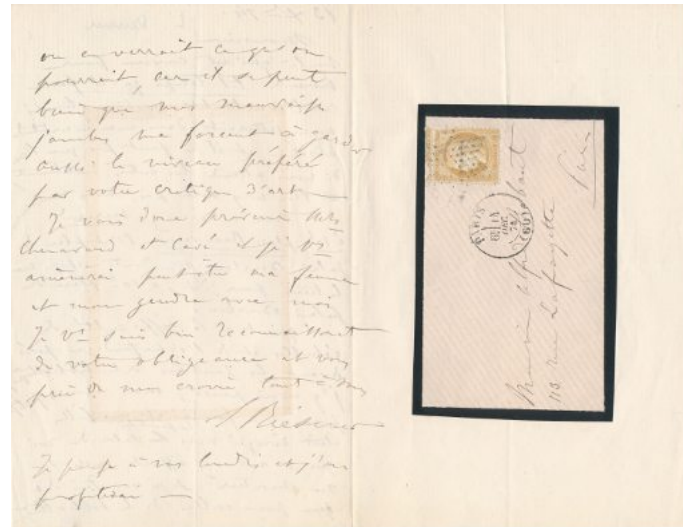 on en verrait ce qu'on
pourrait, car il se peut
bien que mes mauvaises
jambes me forcent à garder
aussi le niveau préféré
par votre critique d'art
Je vais donc prévenir Mrs
Chenavard et Cavé et je Vs
amènerai peut-être ma femme
et mon gendre avec moi
Je Vs suis bien reconnaissant
de votre obligeance et vous
prie de me croire tout à vous
L Riesener
Je pense à vos lundis et j'en
profiterai —
Monsieur Alfred
118 rue Lafayette
Paris
PARIS